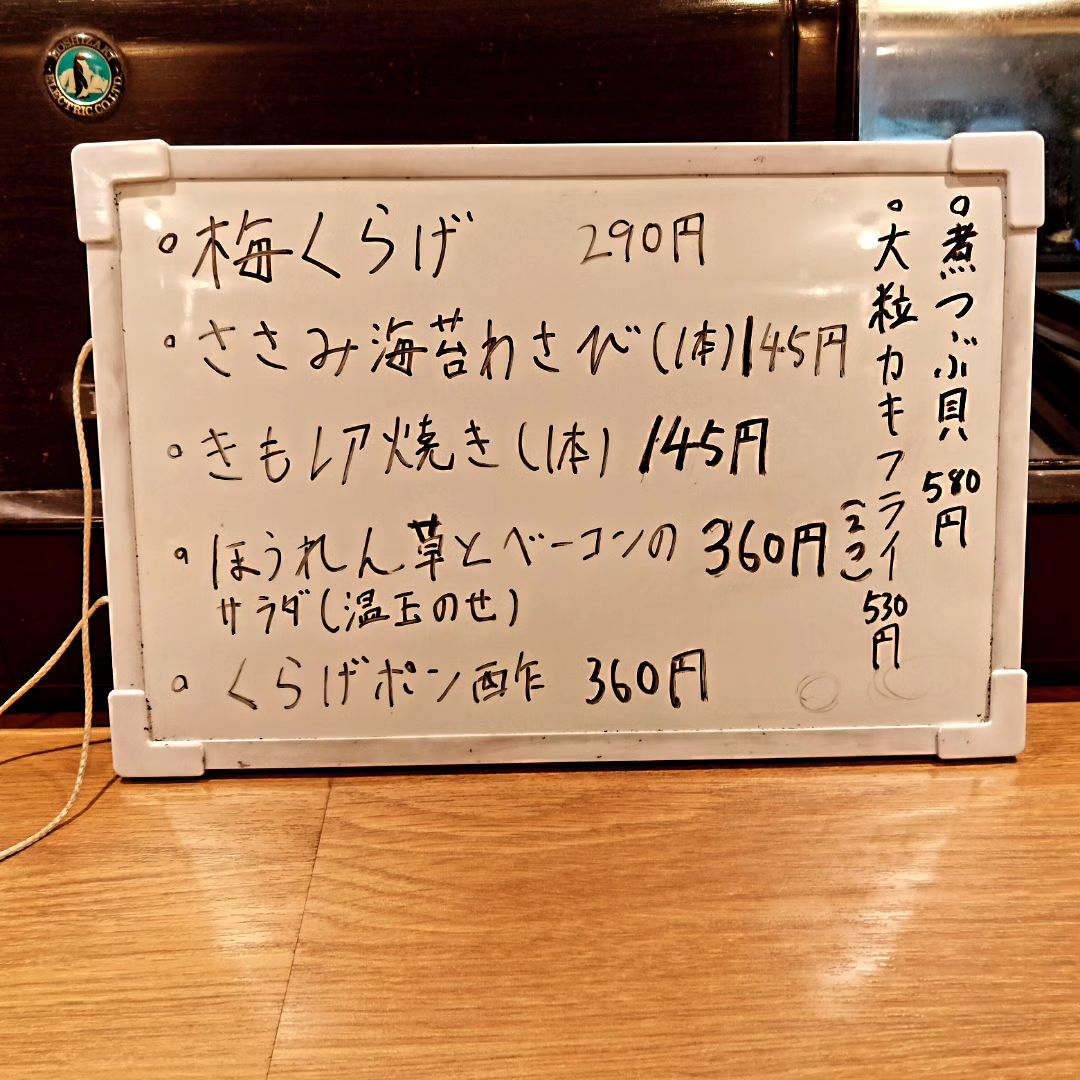 HOSHIZAKI ELECTRIC CO.,LTD.
○梅くらげ 290円
○ささみ海苔わさび(1本)145円
○きもレア焼き(1本)145円
○ほうれん草とベーコンの 360円
サラダ(温玉のせ)
○くらげポン酢 360円
○煮つぶ貝 580円
○大粒カキフライ(2つ) 530円